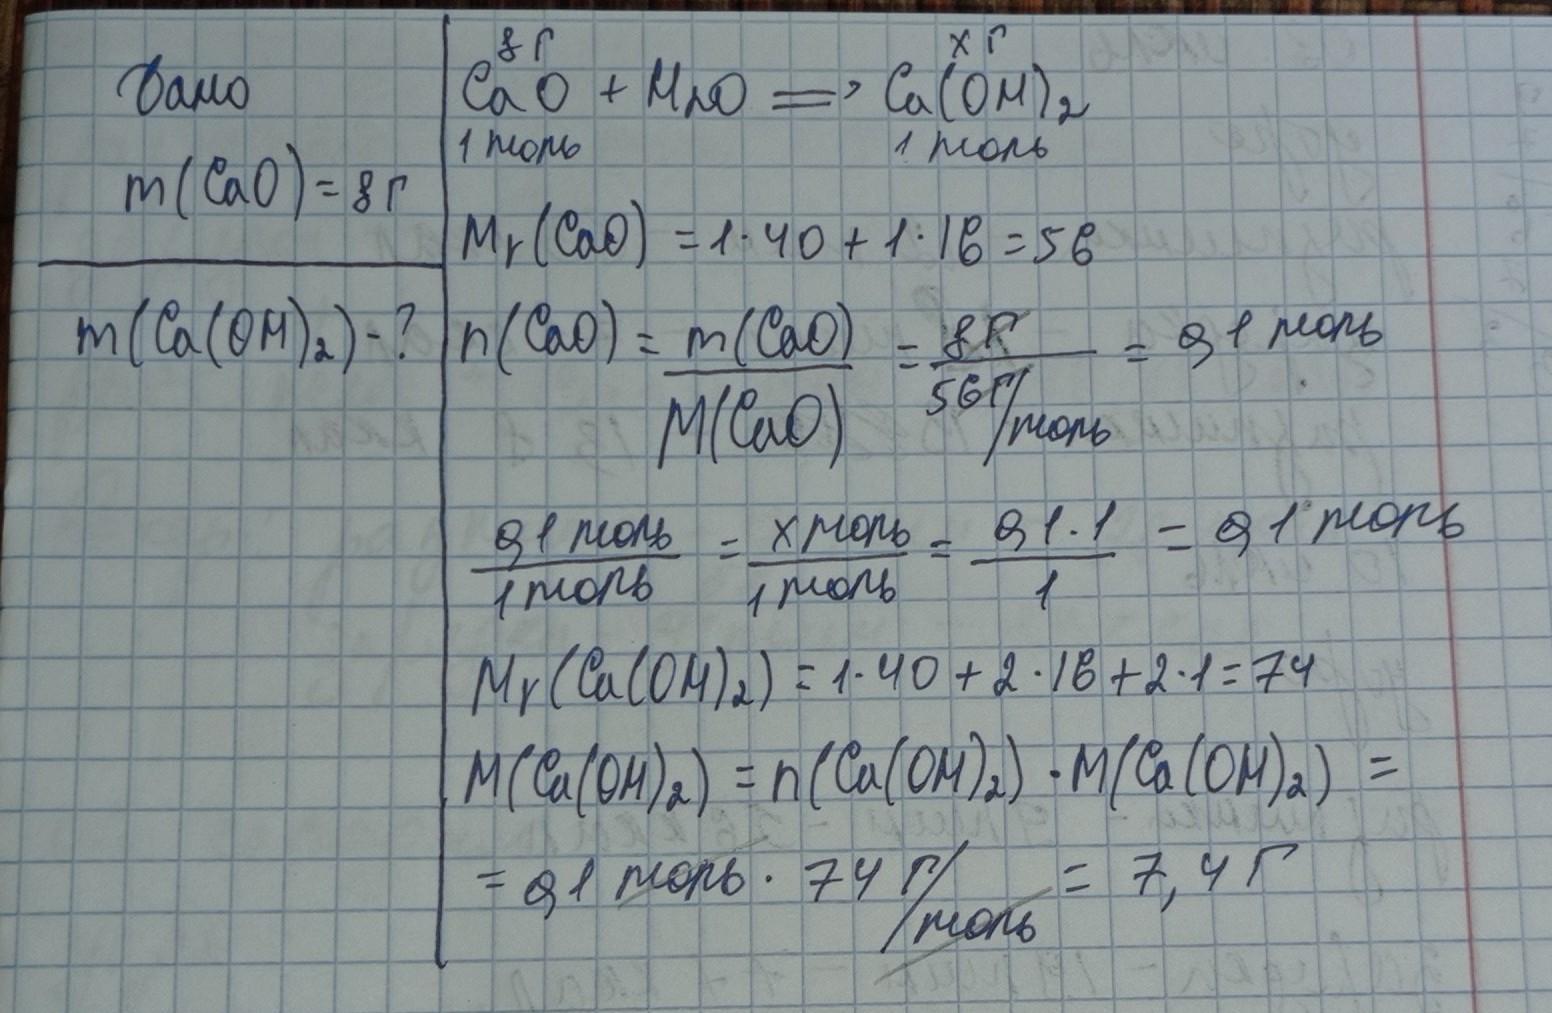 Дано
m(CaO)=8г
m(Ca(OH)₂)-?
8г xг
CaO + H₂O => Ca(OH)₂
1 моль 1 моль
Mr(CaO) = 1·40 + 1·16 = 56
n(CaO) = m(CaO)/M(CaO) = 8г/56г/моль = 0,1 моль
0,1 моль/1 моль = x моль/1 моль = 0,1·1/1 = 0,1 моль
Mr(Ca(OH)₂) = 1·40 + 2·16 + 2·1 = 74
M(Ca(OH)₂) = n(Ca(OH)₂) · M(Ca(OH)₂) =
= 0,1 моль · 74 г/моль = 7,4 г